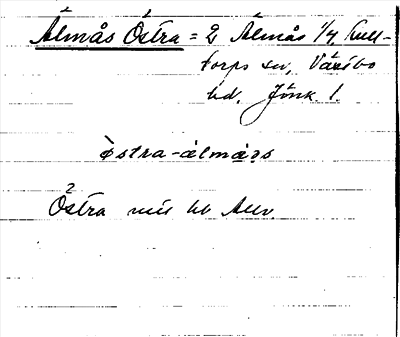 Älmås Östra = 2 Älmås 1/4, Kull-
torps sn, Västbo
hd, Jönk. l.
östra-älmås
Östra